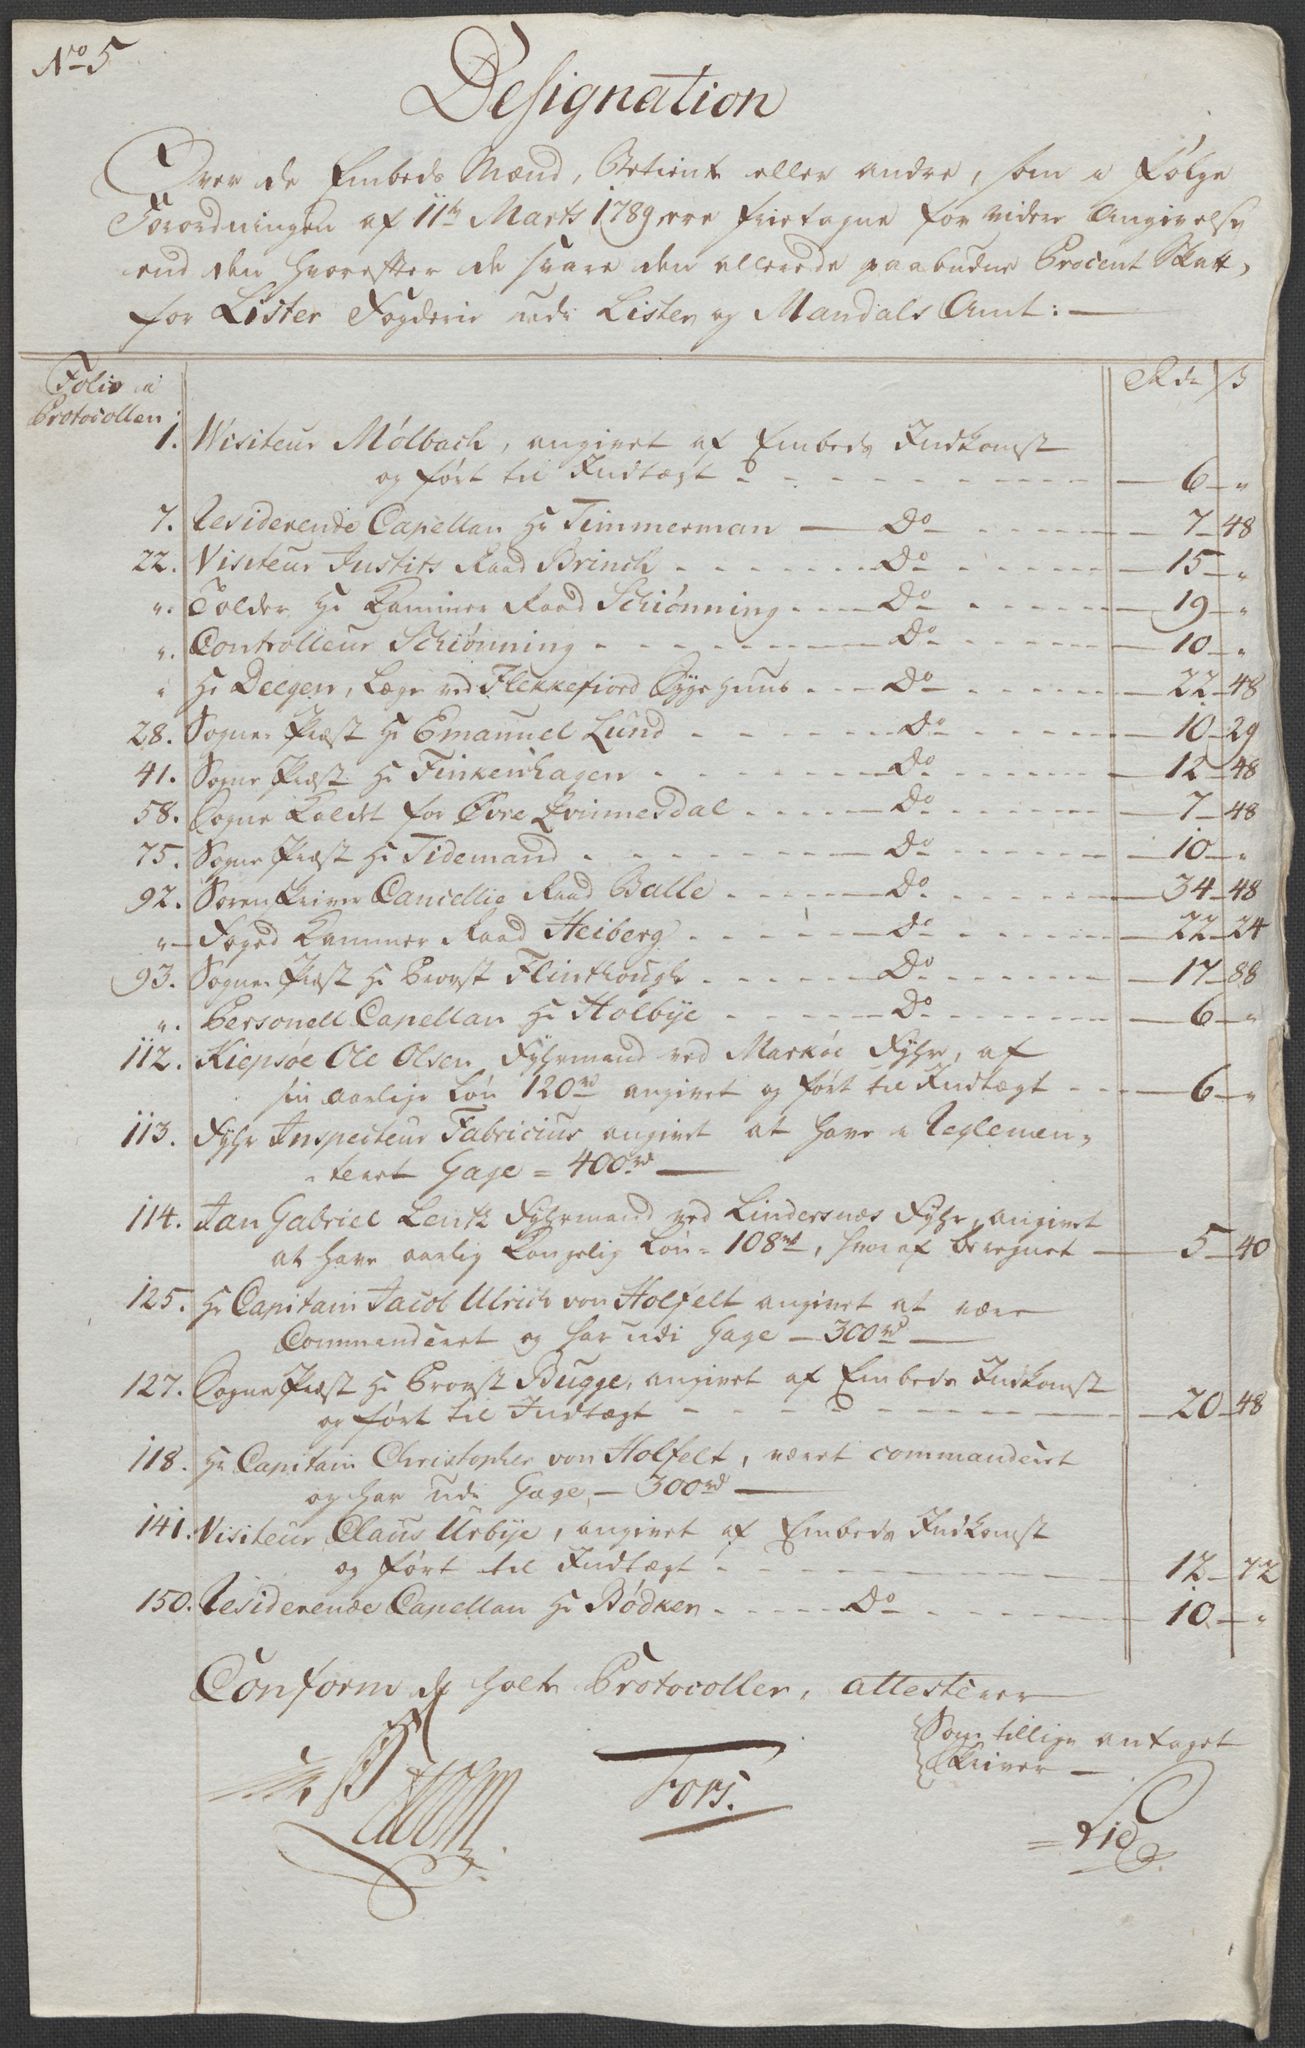 No 5
Designation
Over de Embeds Mænd, Betiente eller andre, som i Følge
Forordningen af 11te Marts 1789 ere fritagne for videre Angivelse
end den hvorefter de svare den allerede paabudne Procent Skatt,
for Lister Fogderie udi Lister og Mandals Amt:
Folio i Rdr ß
Protocollen
1. Visiteur Mølbach, angivet af Embeds Indkomst
og ført til Indtægt 6 - "
7. Residerende Capellan Hr Timmerman - Do 7 - 48
22. Visiteur Justits Raad Brinch Do 15 - "
". Tolder Hr Kammer Raad Schiønning Do 19 - "
". Controlleur Schiønning Do 10 - "
" Hr Deegen, Læge ved Flekkefiord Do 22 - 48
28. Sogne Præst Hr Emanuel Lund Do 10 - 29
41. Sogne Præst Hr Finkenhagen Do 12 - 48
58. Sogne Kaldet for Øvre Qvinnesdal Do 7 - 48
75. Sogne Præst Hr Tidemand Do 10 - "
92. Sorenskriver Cancellie Raad Balle Do 34 - 48
" Foged Kammer Raad Heiberg Do 22 - 24
93. Sogne Præst Hr Provst Flinthough Do 17 - 88
". Personell Capellan Hr Holbye Do 6 - "
112. Kiepsøe Ole Olsen Fyhrmand ved Markøe Fyhr, af
sin aarlige Løn 120rd angivet og ført til Indtægt 6 - "
113. Fyhr Inspecteur Fabricius angivet at have i Reglemen-
teret Gage = 400rd
114. Jan Gabriel Lentz Fyhrmand ved Lindersnæs Fyhr, angivet
at have aarlig Kongelig Løn = 108rd, hvoraf beregnet 5 - 40
125. Hr Capitain Jacob Ulrich von Holfelt angivet at være
Commanderet og har udi Gage - 300rd
127. Sogne Præst Hr Provst Bugge, angivet af Embeds Indkomst
og ført til Indtægt 20 - 48
118. Hr Capitain Christopher von Holfelt, været commanderet
og har udi Gage, - 300rd
141. Visiteur Claus Urbye, angivet af Embeds Indkomst
og ført til Indtægt 12 - 72
150. Residerende Capellan Hr Bødker Do 10 - "
Conform de holte Protocoller, attesterer
Som tillige antaget
Skriver